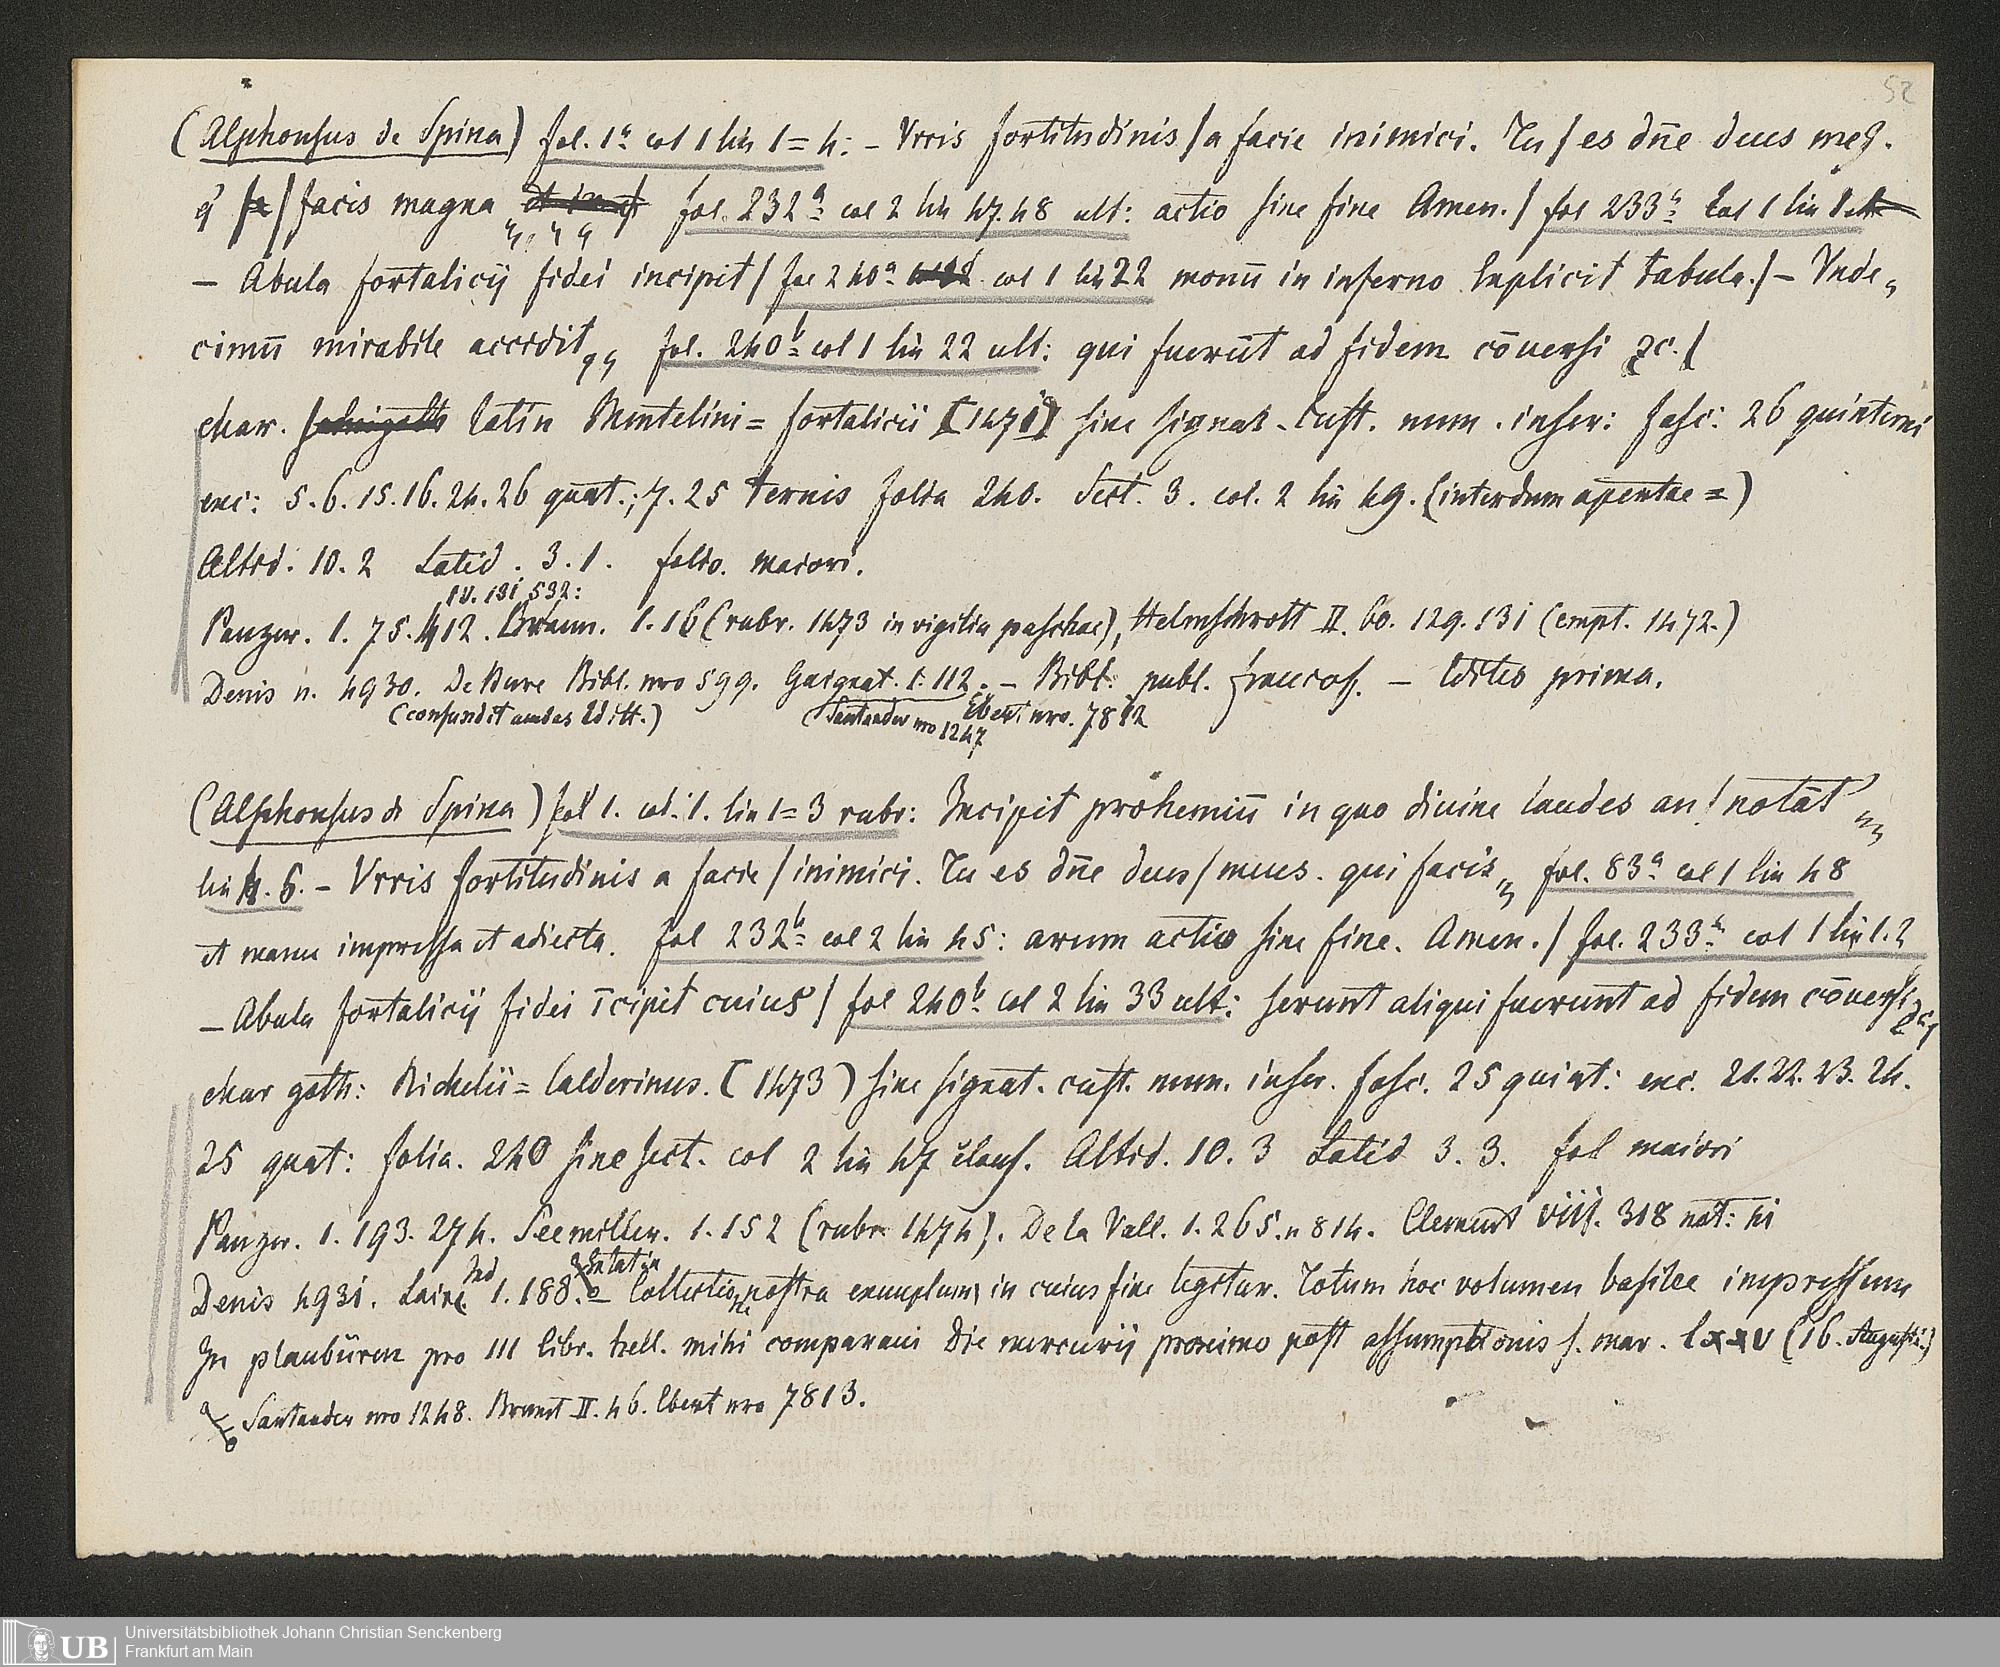 52
(Alphonsus de Spina) fol. 1a col 1 lin 1=4: – Vrris fortitudinis / a facie inimici. Tu / es dn̄e deus me9.
q̇ / facis magna fol. 232a col 2 lin 47.48 ult: actio sine fine Amen. / fol 233a col 1 lin 1
– Abula fortalicij fidei incipit / fol 240a col 1 lin 22 monū in inferno Explicit tabula. / – Vnde„
cimū mirabile accidit „ fol. 240b col 1 lin 22 ult: qui fuerūt ad fidem cōuersi ꝛc. /
char. latin Mentelini = fortalicii [1471] sine signat. cust. num. inscr: fasc: 26 quinterni
exc: 5.6.15.16.24.26 quat.; 7.25 ternis folia 240. Sect. 3. col. 2 lin 49. (interdum apertae =)
Altid. 10.2 Latid. 3.1. folio. maiori.
IV. 131 532:
Panzer. 1. 75. 412. Braun. 1.16 (rubr. 1473 in vigilia paschae), Helmschrott II. 60. 129. 131 (empt. 1472.)
Denis n. 4930. De Bure Bibl. nro 599. Gaignat. 1. 112. – Bibl. publ. francof. – Editio prima.
(confundit ambas Editt.) (Santander nro 1247 Ebert nro. 7812
(Alphonsus de Spina) fol 1. col. 1. lin 1=3 rubr: Incipit prohemiū in quo diuine laudes an! notāt „
lin 4. 6. – Vrris fortitudinis a facie / inimici. Tu es dn̄e deus / meus. qui facis „ fol. 83a col 1 lin 48
et manu impressa et adiecta. fol 232b col 2 lin 45: arum actio sine fine. Amen. / fol. 233a col 1 lin 1.2
– Abula fortalicij fidei īcipit cuius / fol 240b col 2 lin 33 ult: serunt aliqui fuerunt ad fidem cōuersi ꝛc /
char goth: Richelii = Calderinus. [1473) sine signat. cust. num. inscr. fasc. 25 quint: exc. 21.22.23.24.
25 quat: folia. 240 sine sect. col 2 lin 47 claus. Altid. 10. 3 Latid 3. 3. fol maiori
Panzer. 1. 193. 274. Seemiller. 1. 152 (rubr 1474). De la Vall. 1. 265. n 814. Clement VIII. 318 not: 41
Denis 4931. Laire Ind 1. 188. – Collectionis nostra exemplum, in cuius fine legitur. Totum hoc volumen basilee impressum
In plaubüren pro III libr. hell. mihi comparaui Die mercurij proximo post assumptionis s. mar. lxxv (16. Augusti.)
Santander nro 1248. Brunet II. 46. Ebert nro 7813.
UB
Universitätsbibliothek Johann Christian Senckenberg
Frankfurt am Main